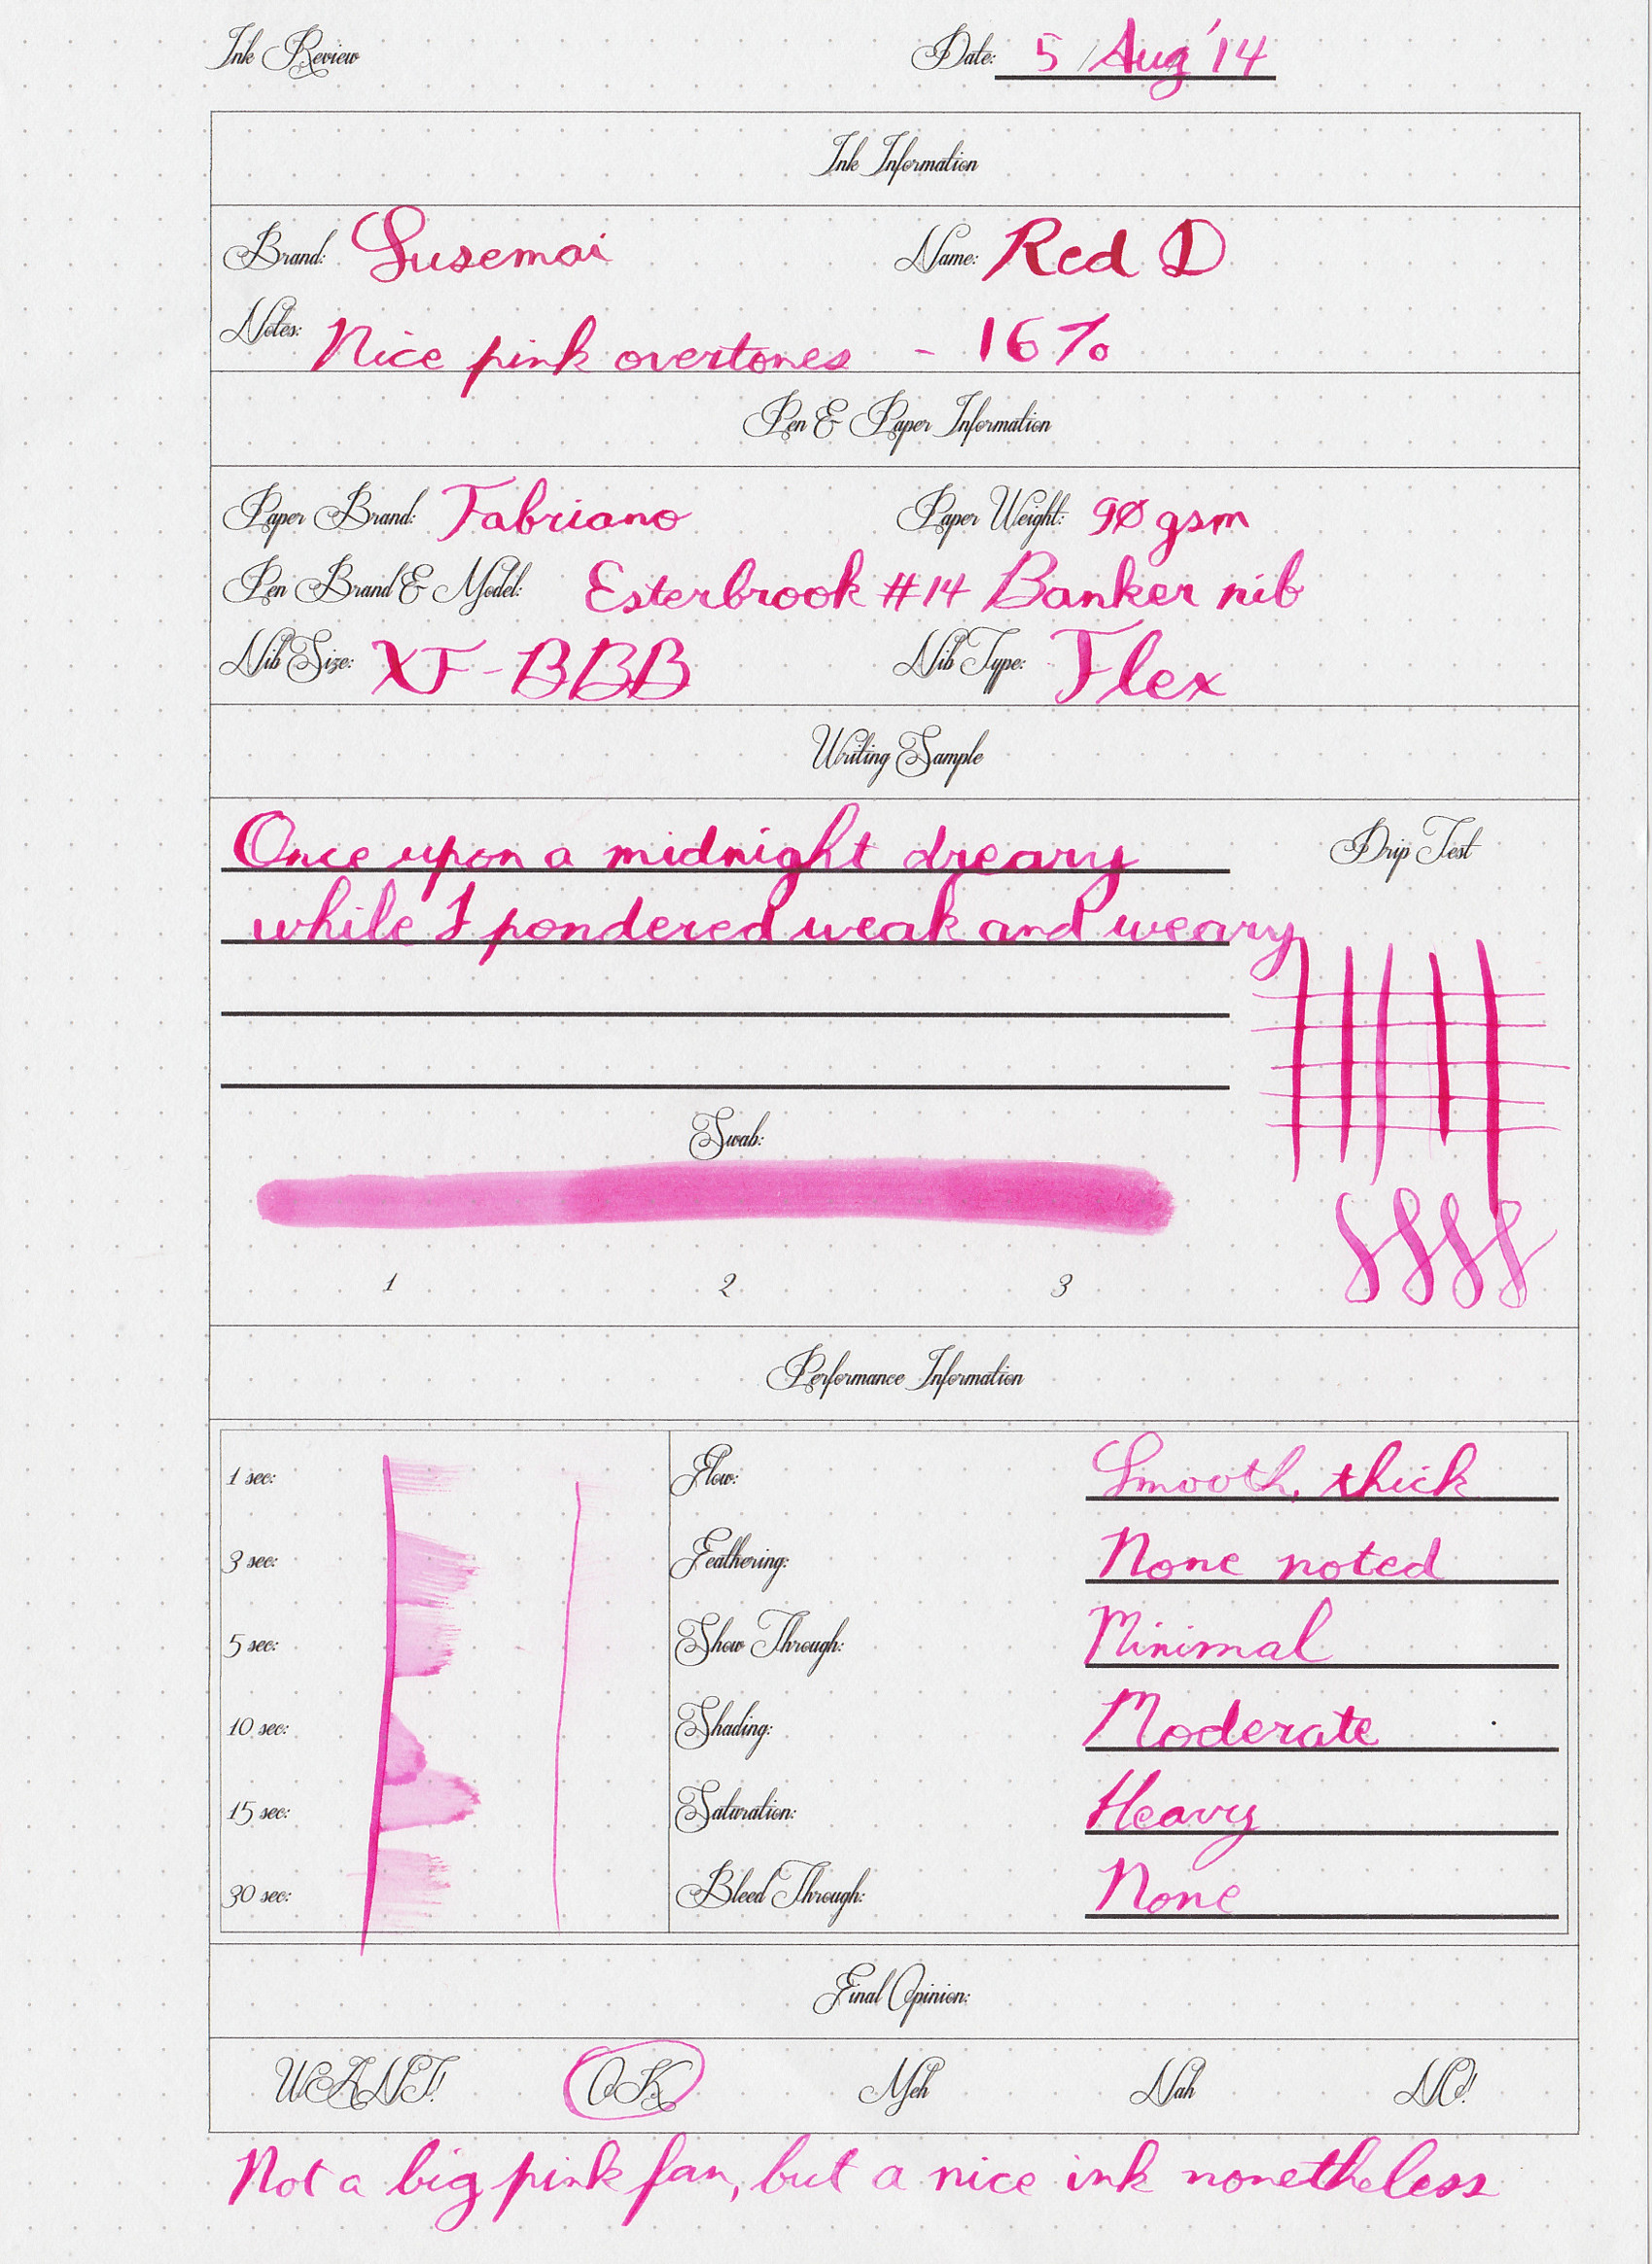 Ink Review Date: 5 Aug '14
Ink Information
Brand: Susemai Name: Red D
Notes: Nice pink overtones - 16%
Pen & Paper Information
Paper Brand: Fabriano Paper Weight: 90 gsm
Pen Brand & Model: Esterbrook #14 Banker nib
Nib Size: XF-BBB Nib Type: Flex
Writing Sample
Once upon a midnight dreary
Drip Test
while I pondered weak and weary
Swab:
1 2 3
Performance Information
1 sec: Flow: Smooth, thick
3 sec: Feathering: None noted
5 sec: Show Through: Minimal
10 sec: Shading: Moderate
15 sec: Saturation: Heavy
30 sec: Bleed Through: None
Final Opinion:
WANT! OK Meh Nah NO!
Not a big pink fan, but a nice ink nonetheless